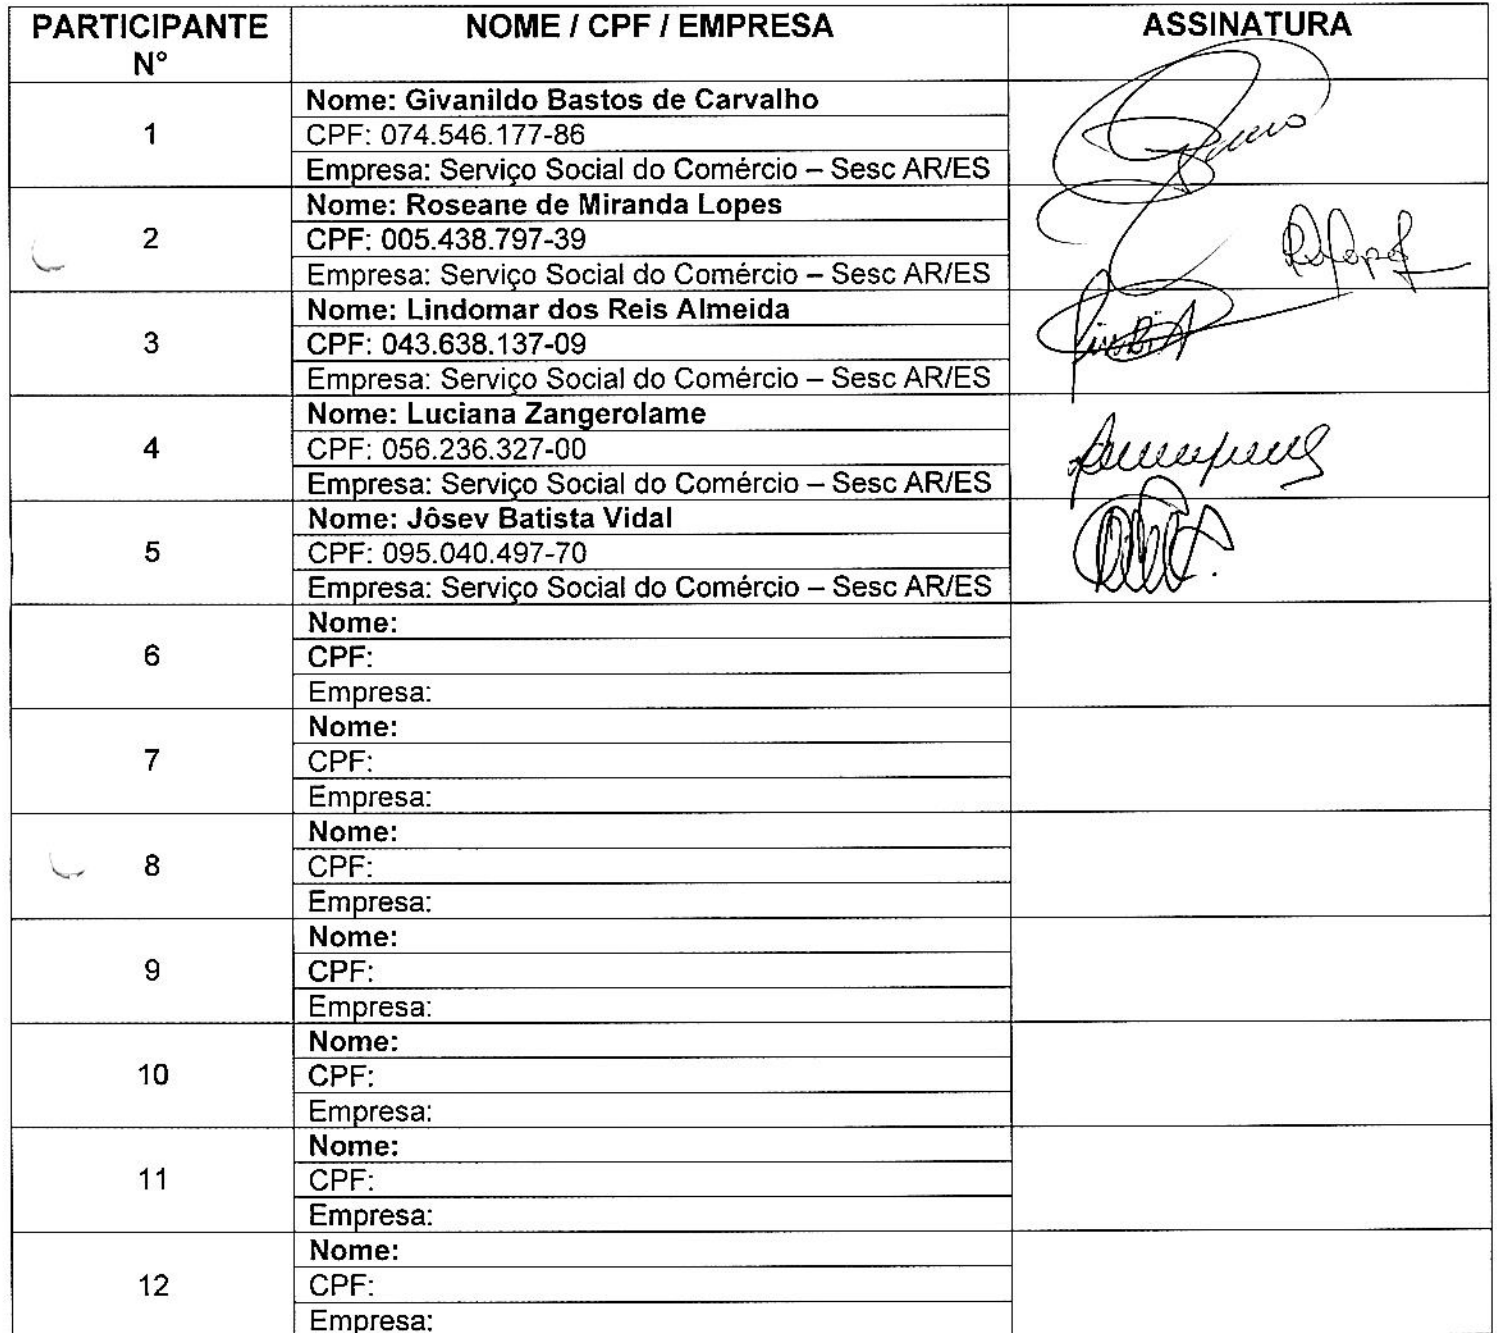 PARTICIPANTE Nº
NOME / CPF / EMPRESA
ASSINATURA
1
Nome: Givanildo Bastos de Carvalho
CPF: 074.546.177-86
Empresa: Serviço Social do Comércio – Sesc AR/ES
2
Nome: Roseane de Miranda Lopes
CPF: 005.438.797-39
Empresa: Serviço Social do Comércio – Sesc AR/ES
3
Nome: Lindomar dos Reis Almeida
CPF: 043.638.137-09
Empresa: Serviço Social do Comércio – Sesc AR/ES
4
Nome: Luciana Zangerolame
CPF: 056.236.327-00
Empresa: Serviço Social do Comércio – Sesc AR/ES
5
Nome: Jôsev Batista Vidal
CPF: 095.040.497-70
Empresa: Serviço Social do Comércio – Sesc AR/ES
6
Nome:
CPF:
Empresa:
7
Nome:
CPF:
Empresa:
8
Nome:
CPF:
Empresa:
9
Nome:
CPF:
Empresa:
10
Nome:
CPF:
Empresa:
11
Nome:
CPF:
Empresa:
12
Nome:
CPF:
Empresa: